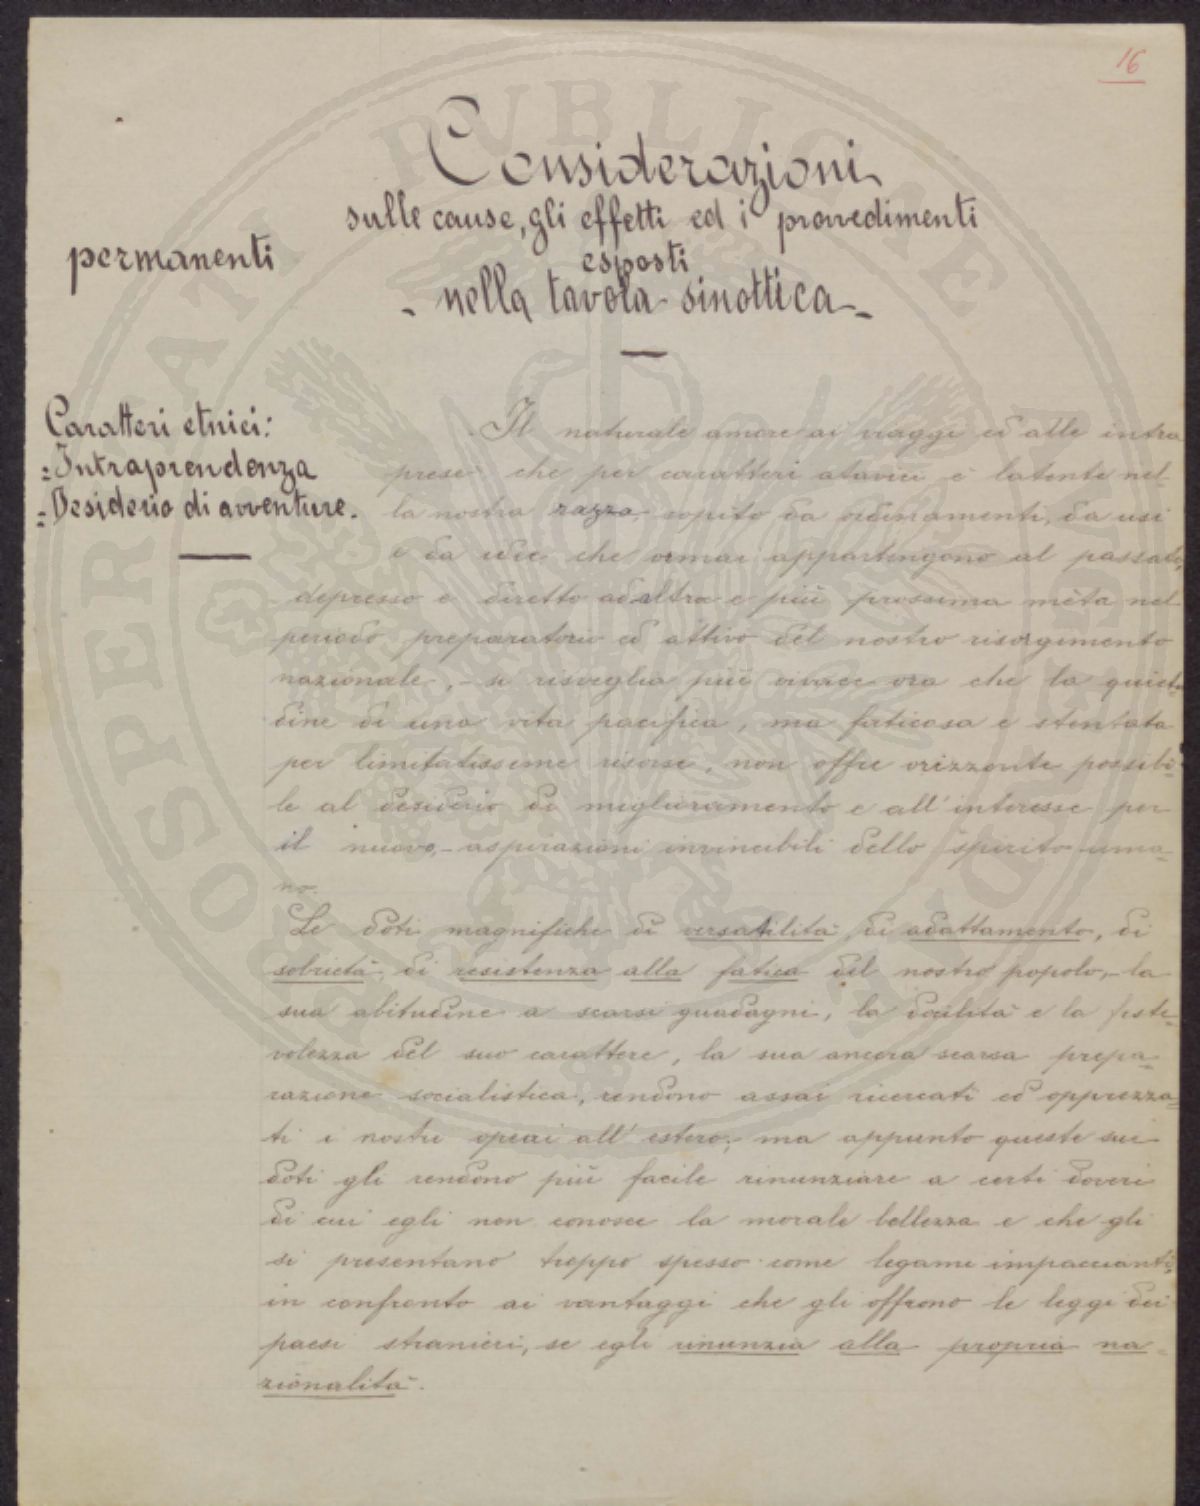 16
Considerazioni
sulle cause, gli effetti ed i provvedimenti
esposti
- nella tavola sinottica -
permanenti
Caratteri etnici:
- Intraprendenza
- Desiderio di avventure.
Il naturale amore ai viaggi ed alle intra
prese che per caratteri atavici è latente nel-
la nostra razza, sopito da ordinamenti, da usi
e da idee che ormai appartengono al passato,
depresso e diretto ad altra e più prossima mèta nel
periodo preparatorio ed attivo del nostro risorgimento
nazionale, - si risveglia più vivace ora che la quietu
dine di una vita pacifica, ma faticosa e stentata
per limitatissime risorse, non offre orizzonte possibi-
le al desiderio di miglioramento e all'interesse per
il nuovo, - aspirazioni invincibili dello spirito uma-
no.
Le doti magnifiche di versatilità, di adattamento, di
sobrietà, di resistenza alla fatica del nostro popolo, - la
sua abitudine a scarsi guadagni, la docilità e la feste-
volezza del suo carattere, la sua ancora scarsa prepa-
razione socialistica, rendono assai ricercati ed apprezza-
ti i nostri operai all'estero; ma appunto queste sue
doti gli rendono più facile rinunziare a certi doveri
di cui egli non conosce la morale bellezza e che gli
si presentano troppo spesso come legami impaccianti,
in confronto ai vantaggi che gli offrono le leggi dei
paesi stranieri, se egli rinunzia alla propria na-
zionalità.
SPQR